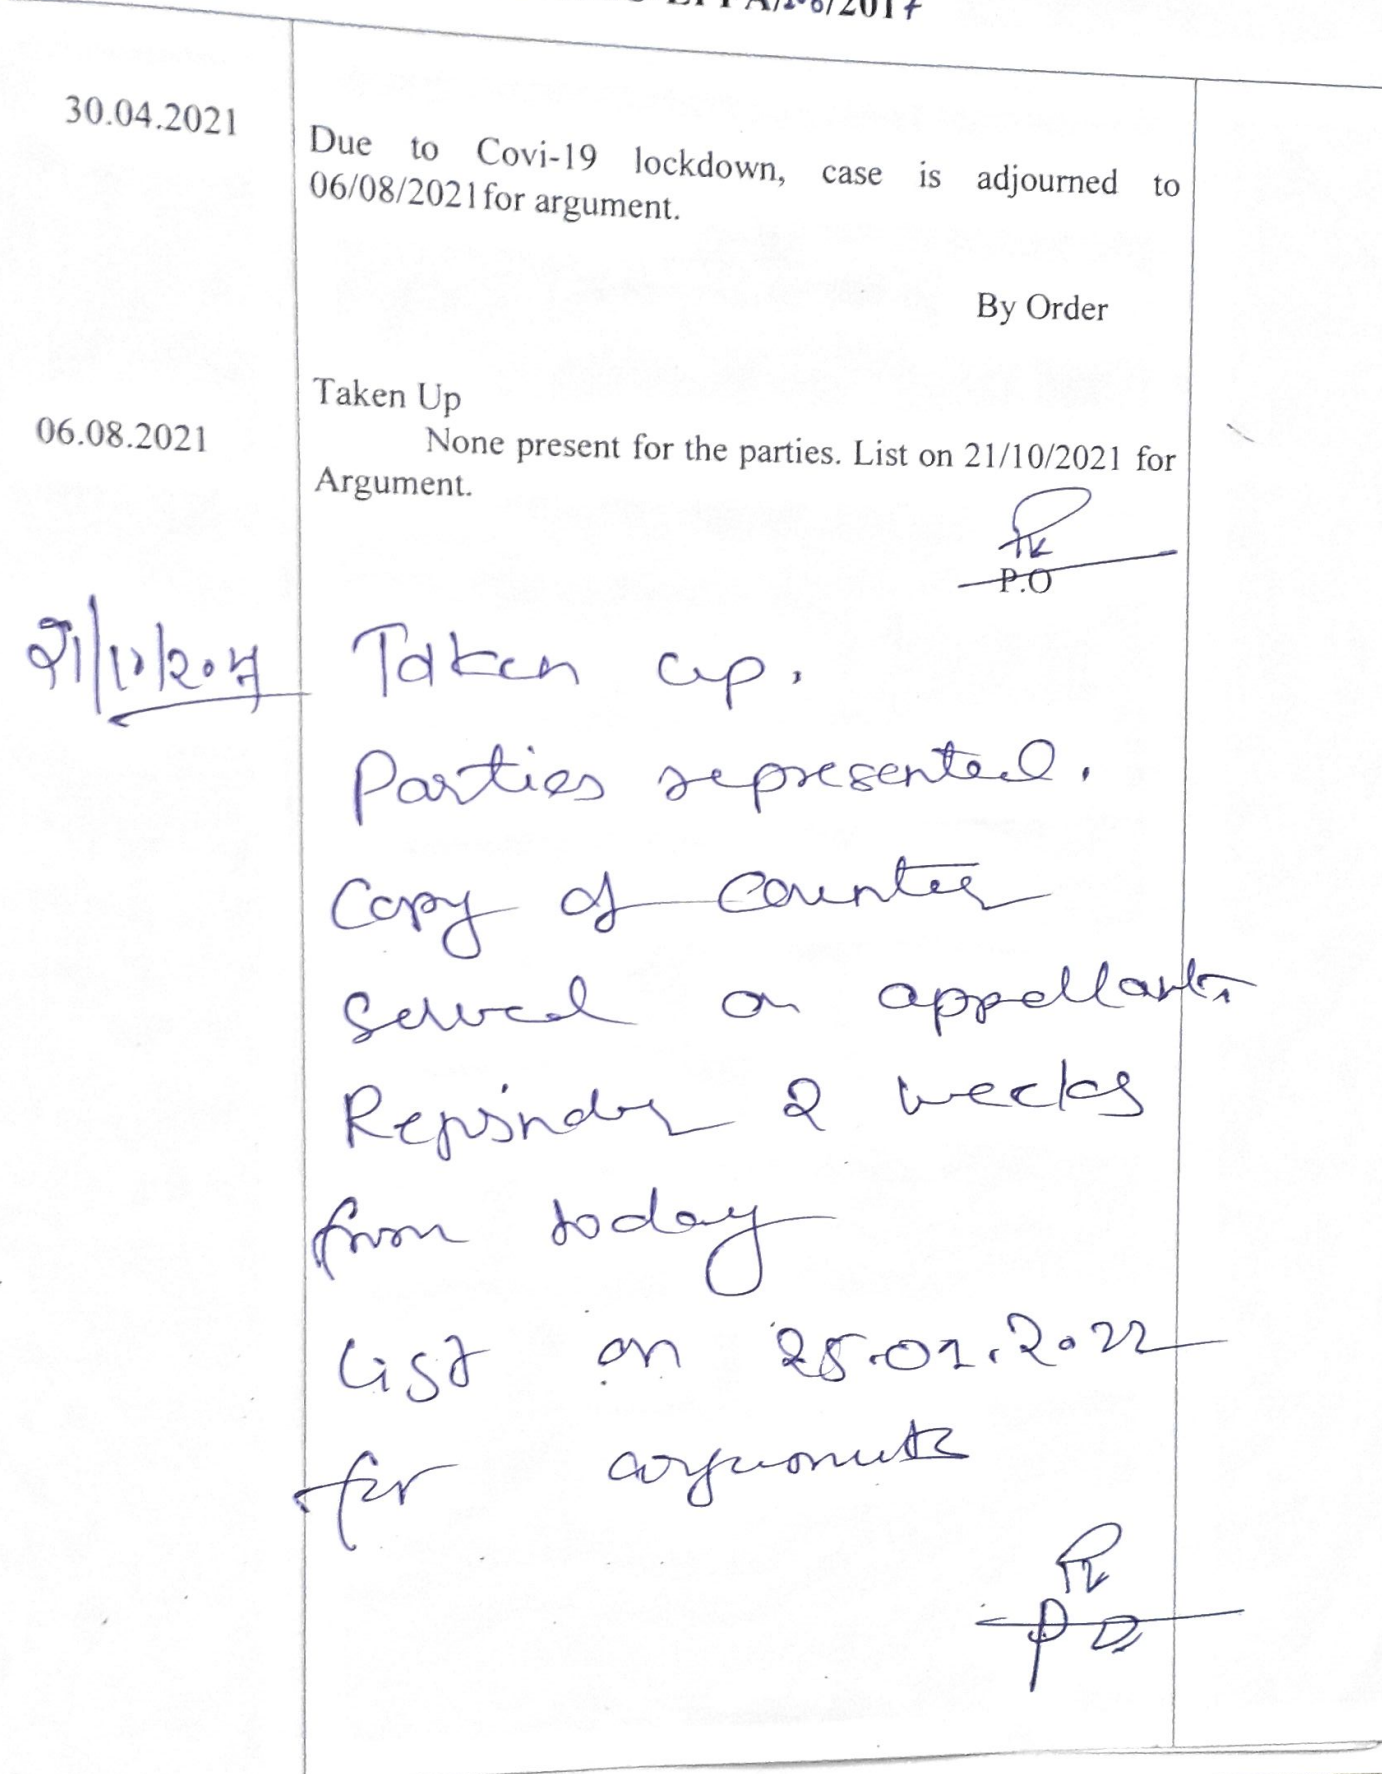 30.04.2021
Due to Covi-19 lockdown, case is adjourned to
06/08/2021 for argument.
By Order
Taken Up
06.08.2021
None present for the parties. List on 21/10/2021 for
Argument.
P.O
Taken up.
Parties represented.
Copy of Counter
Served on appellant.
Rejoinder 2 weeks
from today
List on 25.01.2022
for arguments
PO